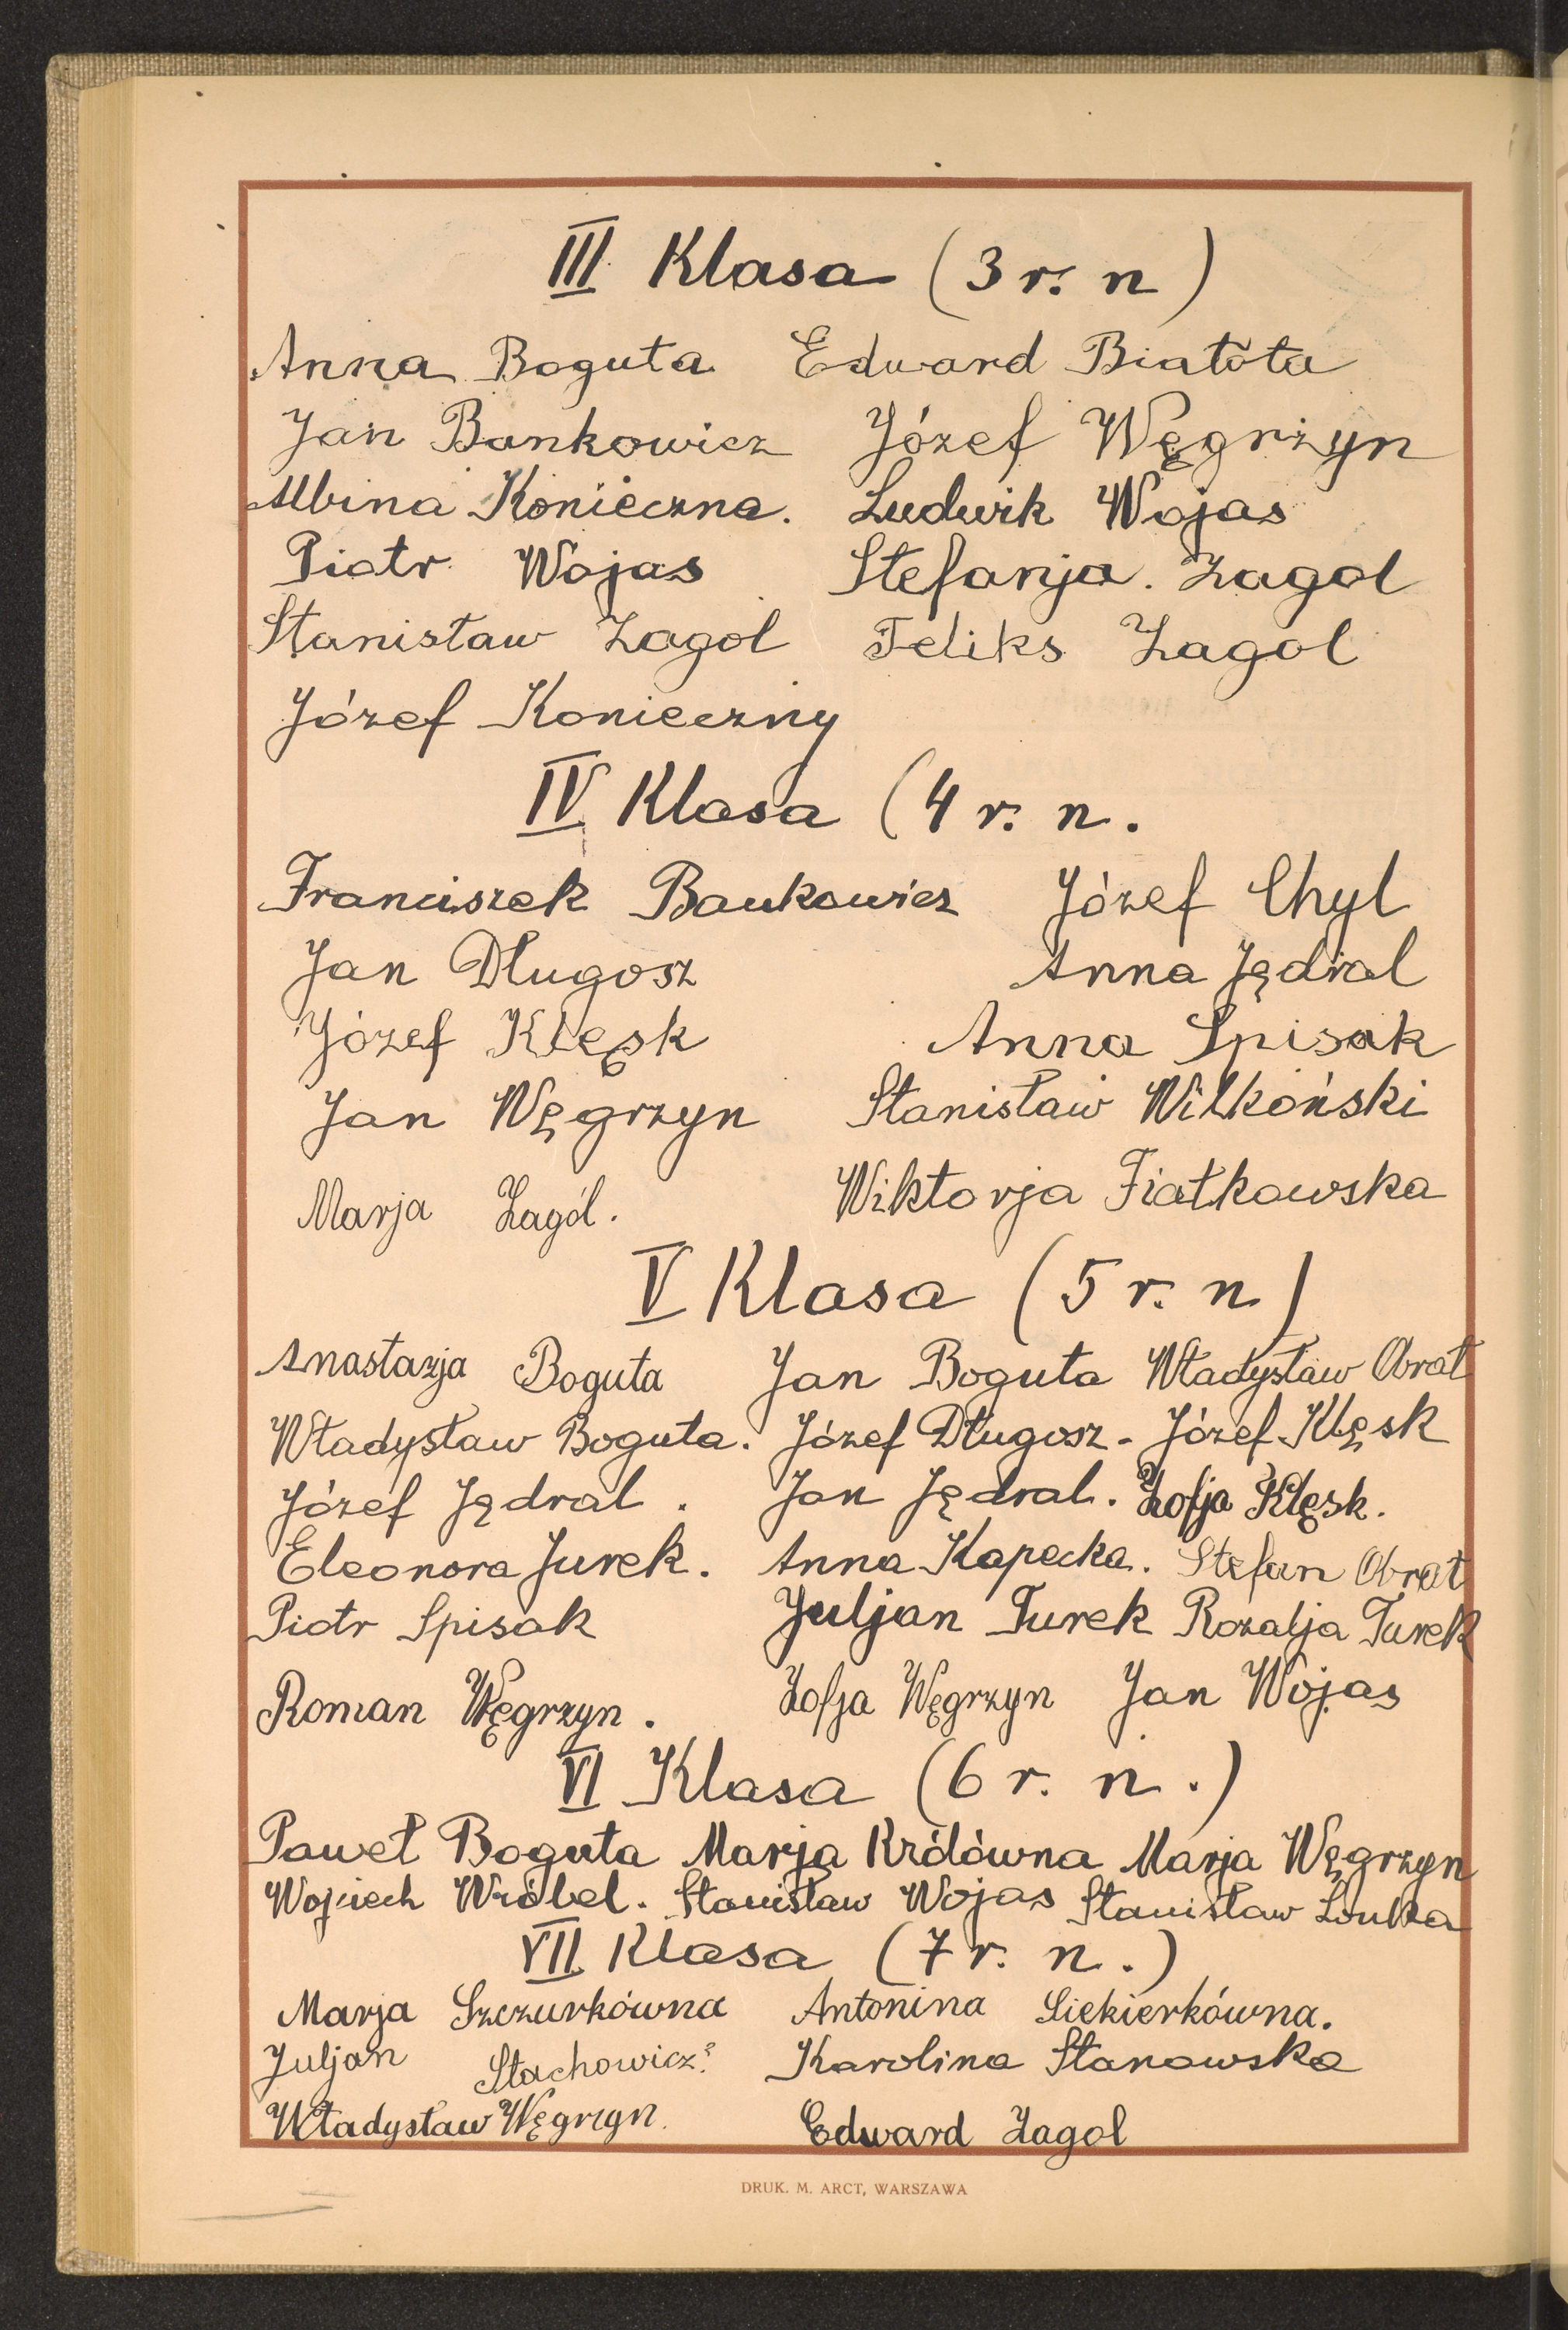 III Klasa (3 r. n)
Anna Boguta Edward Białóta
Jan Bankowicz Józef Węgrzyn
Albina Konieczna. Ludwik Wojas
Piotr Wojas Stefanja. Zagol
Stanisław Zagol Feliks Zagol
Józef Konieczny
IV Klasa (4 r. n.
Franciszek Bankowicz Józef Chyl
Jan Długosz Anna Jędral
Józef Klęsk Anna Spisak
Jan Węgrzyn Stanisław Wilkoński
Marja Zagól. Wiktorja Fiałkowska
V Klasa (5 r. n)
Anastazja Boguta Jan Boguta Władysław Obrał
Władysław Boguta. Józef Długosz - Józef Klęsk
Józef Jędral. Jan Jędral. Zofja Klęsk.
Eleonora Jurek. Anna Kapecka. Stefan Obrał
Piotr Spisak Juljan Turek Rozalja Turek
Roman Węgrzyn. Zofja Węgrzyn Jan Wojas
VI Klasa (6 r. n.)
Paweł Boguta Marja Królówna Marja Węgrzyn
Wojciech Wróbel. Stanisław Wojas Stanisław
VII Klasa (7 r. n.)
Marja Szczurkówna Antonina Siekierkówna.
Juljan Stachowicz? Karolina Stanowska
Władysław Węgrzyn. Edward Zagol
DRUK. M. ARCT, WARSZAWA